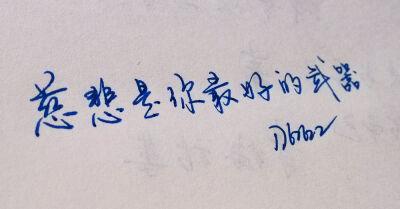 慈悲是你最好的武器